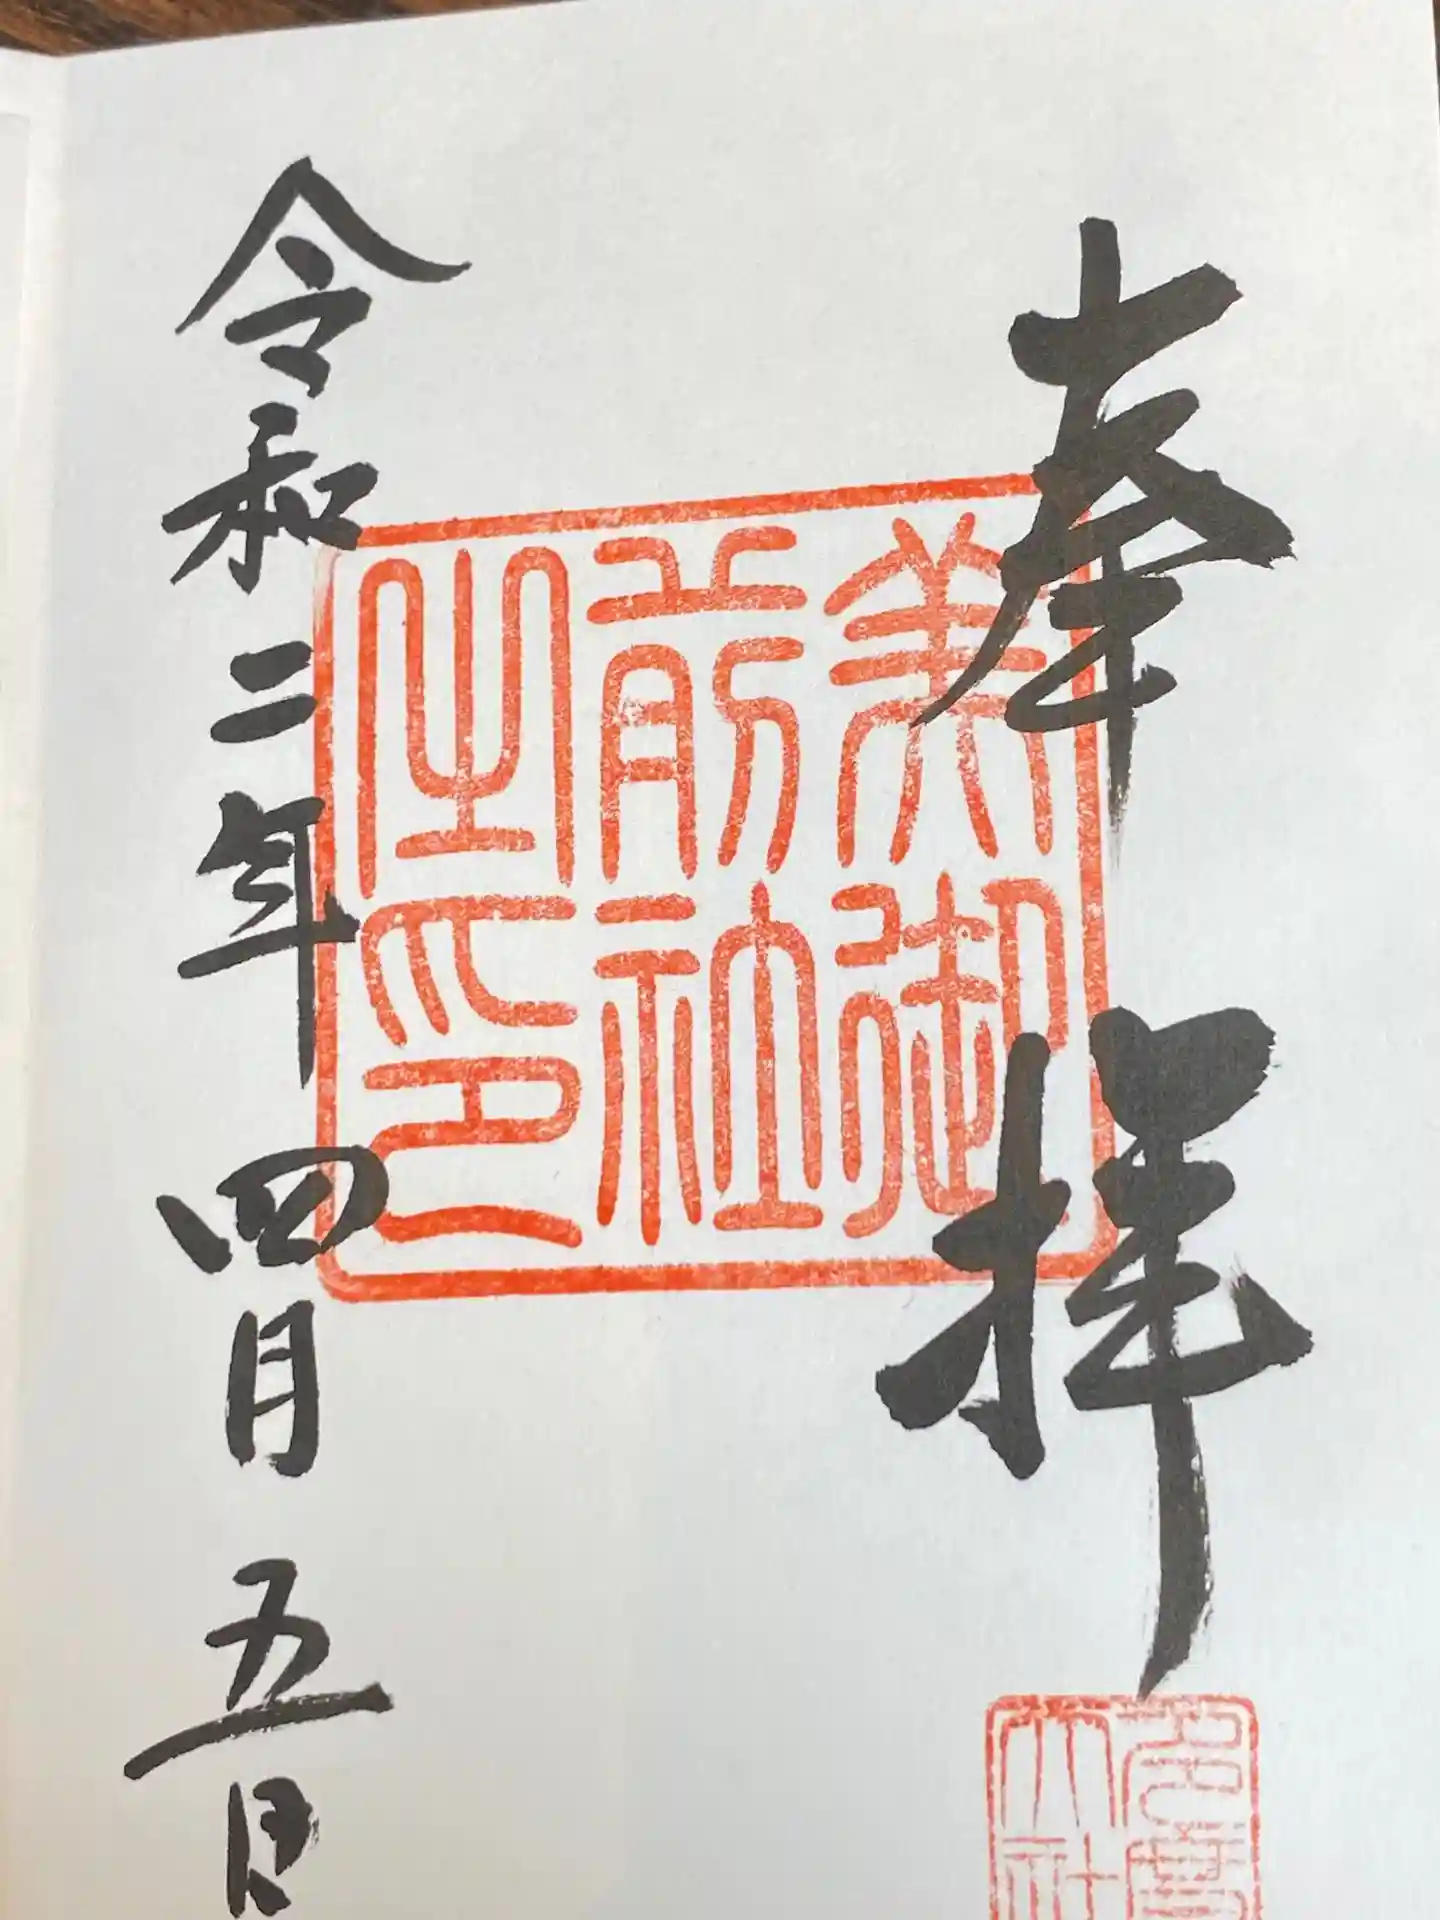 奉拝
美御
前社
之印
令和二年四月五日
大社